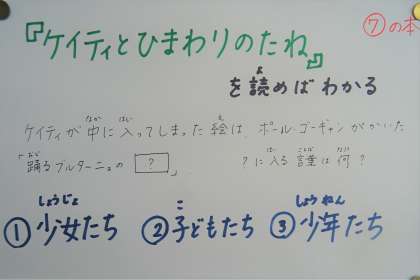 ⑦の本
『ケイティとひまわりのたね』
を読めばわかる
ケイティが中に入ってしまった絵は、ポール・ゴーギャンがかいた
「踊るブルターニュの ? 」 ?に入る言葉は何?
①少女たち ②子どもたち ③少年たち